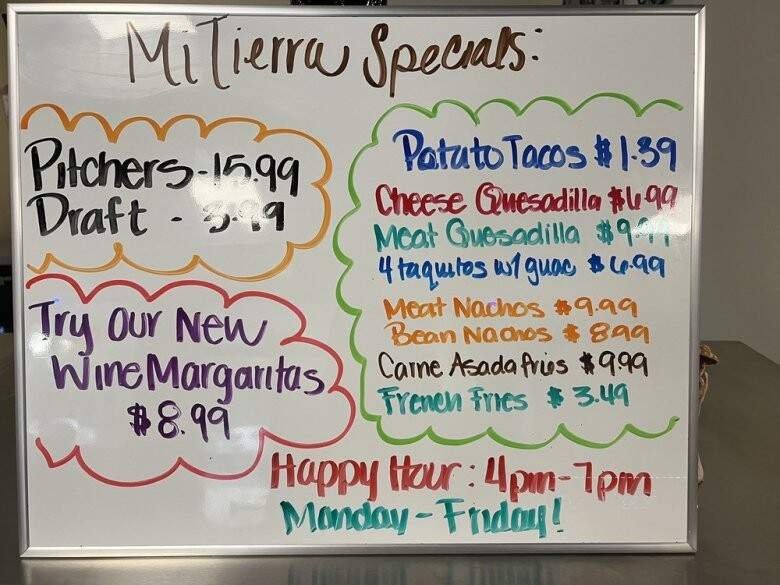 Mi Tierra Specials:
Pitchers - 15.99
Draft - 3.99
Try Our New
Wine Margaritas
$8.99
Patato Tacos $1.39
Cheese Quesadilla $6.99
Meat Quesadilla $9.99
4 taquitos w/ guac $6.99
Meat Nachos $9.99
Bean Nachos $8.99
Carne Asada fries $9.99
French Fries $3.49
Happy Hour: 4pm-7pm
Monday-Friday!